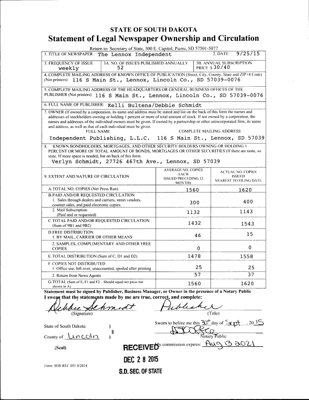 STATE OF SOUTH DAKOTA
Statement of Legal Newspaper Ownership and Circulation
Return to: Secretary of State, 500 E. Capitol, Pierre, SD 57501-5077
1. TITLE OF NEWSPAPER The Lennox Independent 2. DATE 9/25/15
3. FREQUENCY OF ISSUE weekly
3A. NO. OF ISSUES PUBLISHED ANNUALLY 52
3B. ANNUAL SUBSCRIPTION PRICE $30/40
4. COMPLETE MAILING ADDRESS OF KNOWN OFFICE OF PUBLICATION (Street, City, County, State and ZIP+4 Code)
(Not printers) 116 S Main St., Lennox, Lincoln Co., SD 57039-0076
5. COMPLETE MAILING ADDRESS OF THE HEADQUARTERS OR GENERAL BUSINESS OFFICES OF THE
PUBLISHER (Not printers) 116 S Main St., Lennox, Lincoln Co., SD 57039-0076
6. FULL NAME OF PUBLISHER: Kelli Bultena/Debbie Schmidt
7. OWNER (If owned by a corporation, its name and address must be stated and list on the back of this form the names and
addresses of stockholders owning or holding 1 percent or more of total amount of stock. If not owned by a corporation, the
names and addresses of the individual owners must be given. If owned by a partnership or other unincorporated firm, its name
and address, as well as that of each individual must be given.
FULL NAME COMPLETE MAILING ADDRESS
Independent Publishing, L.L.C. 116 S Main St., Lennox, SD 57039
8. KNOWN BONDHOLDERS, MORTGAGEES, AND OTHER SECURITY HOLDERS OWNING OR HOLDING 1
PERCENT OR MORE OF TOTAL AMOUNT OF BONDS, MORTGAGES OR OTHER SECURITIES (If there are none, so
state. If more space is needed, list on back of this form.
Verlyn Schmidt, 27726 467th Ave., Lennox, SD 57039
9. EXTENT AND NATURE OF CIRCULATION
AVERAGE NO. COPIES EACH ISSUED PRECEDING 12 MONTHS
ACTUAL NO. COPIES ISSUED NEAREST TO FILING DATE
A. TOTAL NO. COPIES (Net Press Run) 1560 1620
B. PAID AND/OR REQUESTED CIRCULATION
1. Sales through dealers and carriers, street vendors,
counter sales, and paid electronic copies. 300 400
2. Mail Subscription
(Paid and or requested) 1132 1143
C. TOTAL PAID AND/OR REQUESTED CIRCULATION
(Sum of 9B1 and 9B2) 1432 1543
D. FREE DISTRIBUTION
1. BY MAIL, CARRIER OR OTHER MEANS 46 15
2. SAMPLES, COMPLIMENTARY, AND OTHER FREE
COPIES 0 0
E. TOTAL DISTRIBUTION (Sum of C, D1 and D2) 1478 1558
F. COPIES NOT DISTRIBUTED
1. Office use, left over, unaccounted, spoiled after printing 25 25
2. Return from News Agents 57 37
G. TOTAL (Sum of E, F1 and F2 - Should equal net press run
shown in A) 1560 1620
Statement must be signed by Publisher, Business Manager, or Owner in the presence of a Notary Public
I swear that the statements made by me are true, correct, and complete:
Debbie Schmidt Publisher
(Signature) (Title)
State of South Dakota )
Sworn to before me this 30th day of Sept, 2015
County of Lincoln )
Notary Public
(Seal)
commission expires: Aug 13 2021
RECEIVED
DEC 28 2015
S.D. SEC. OF STATE